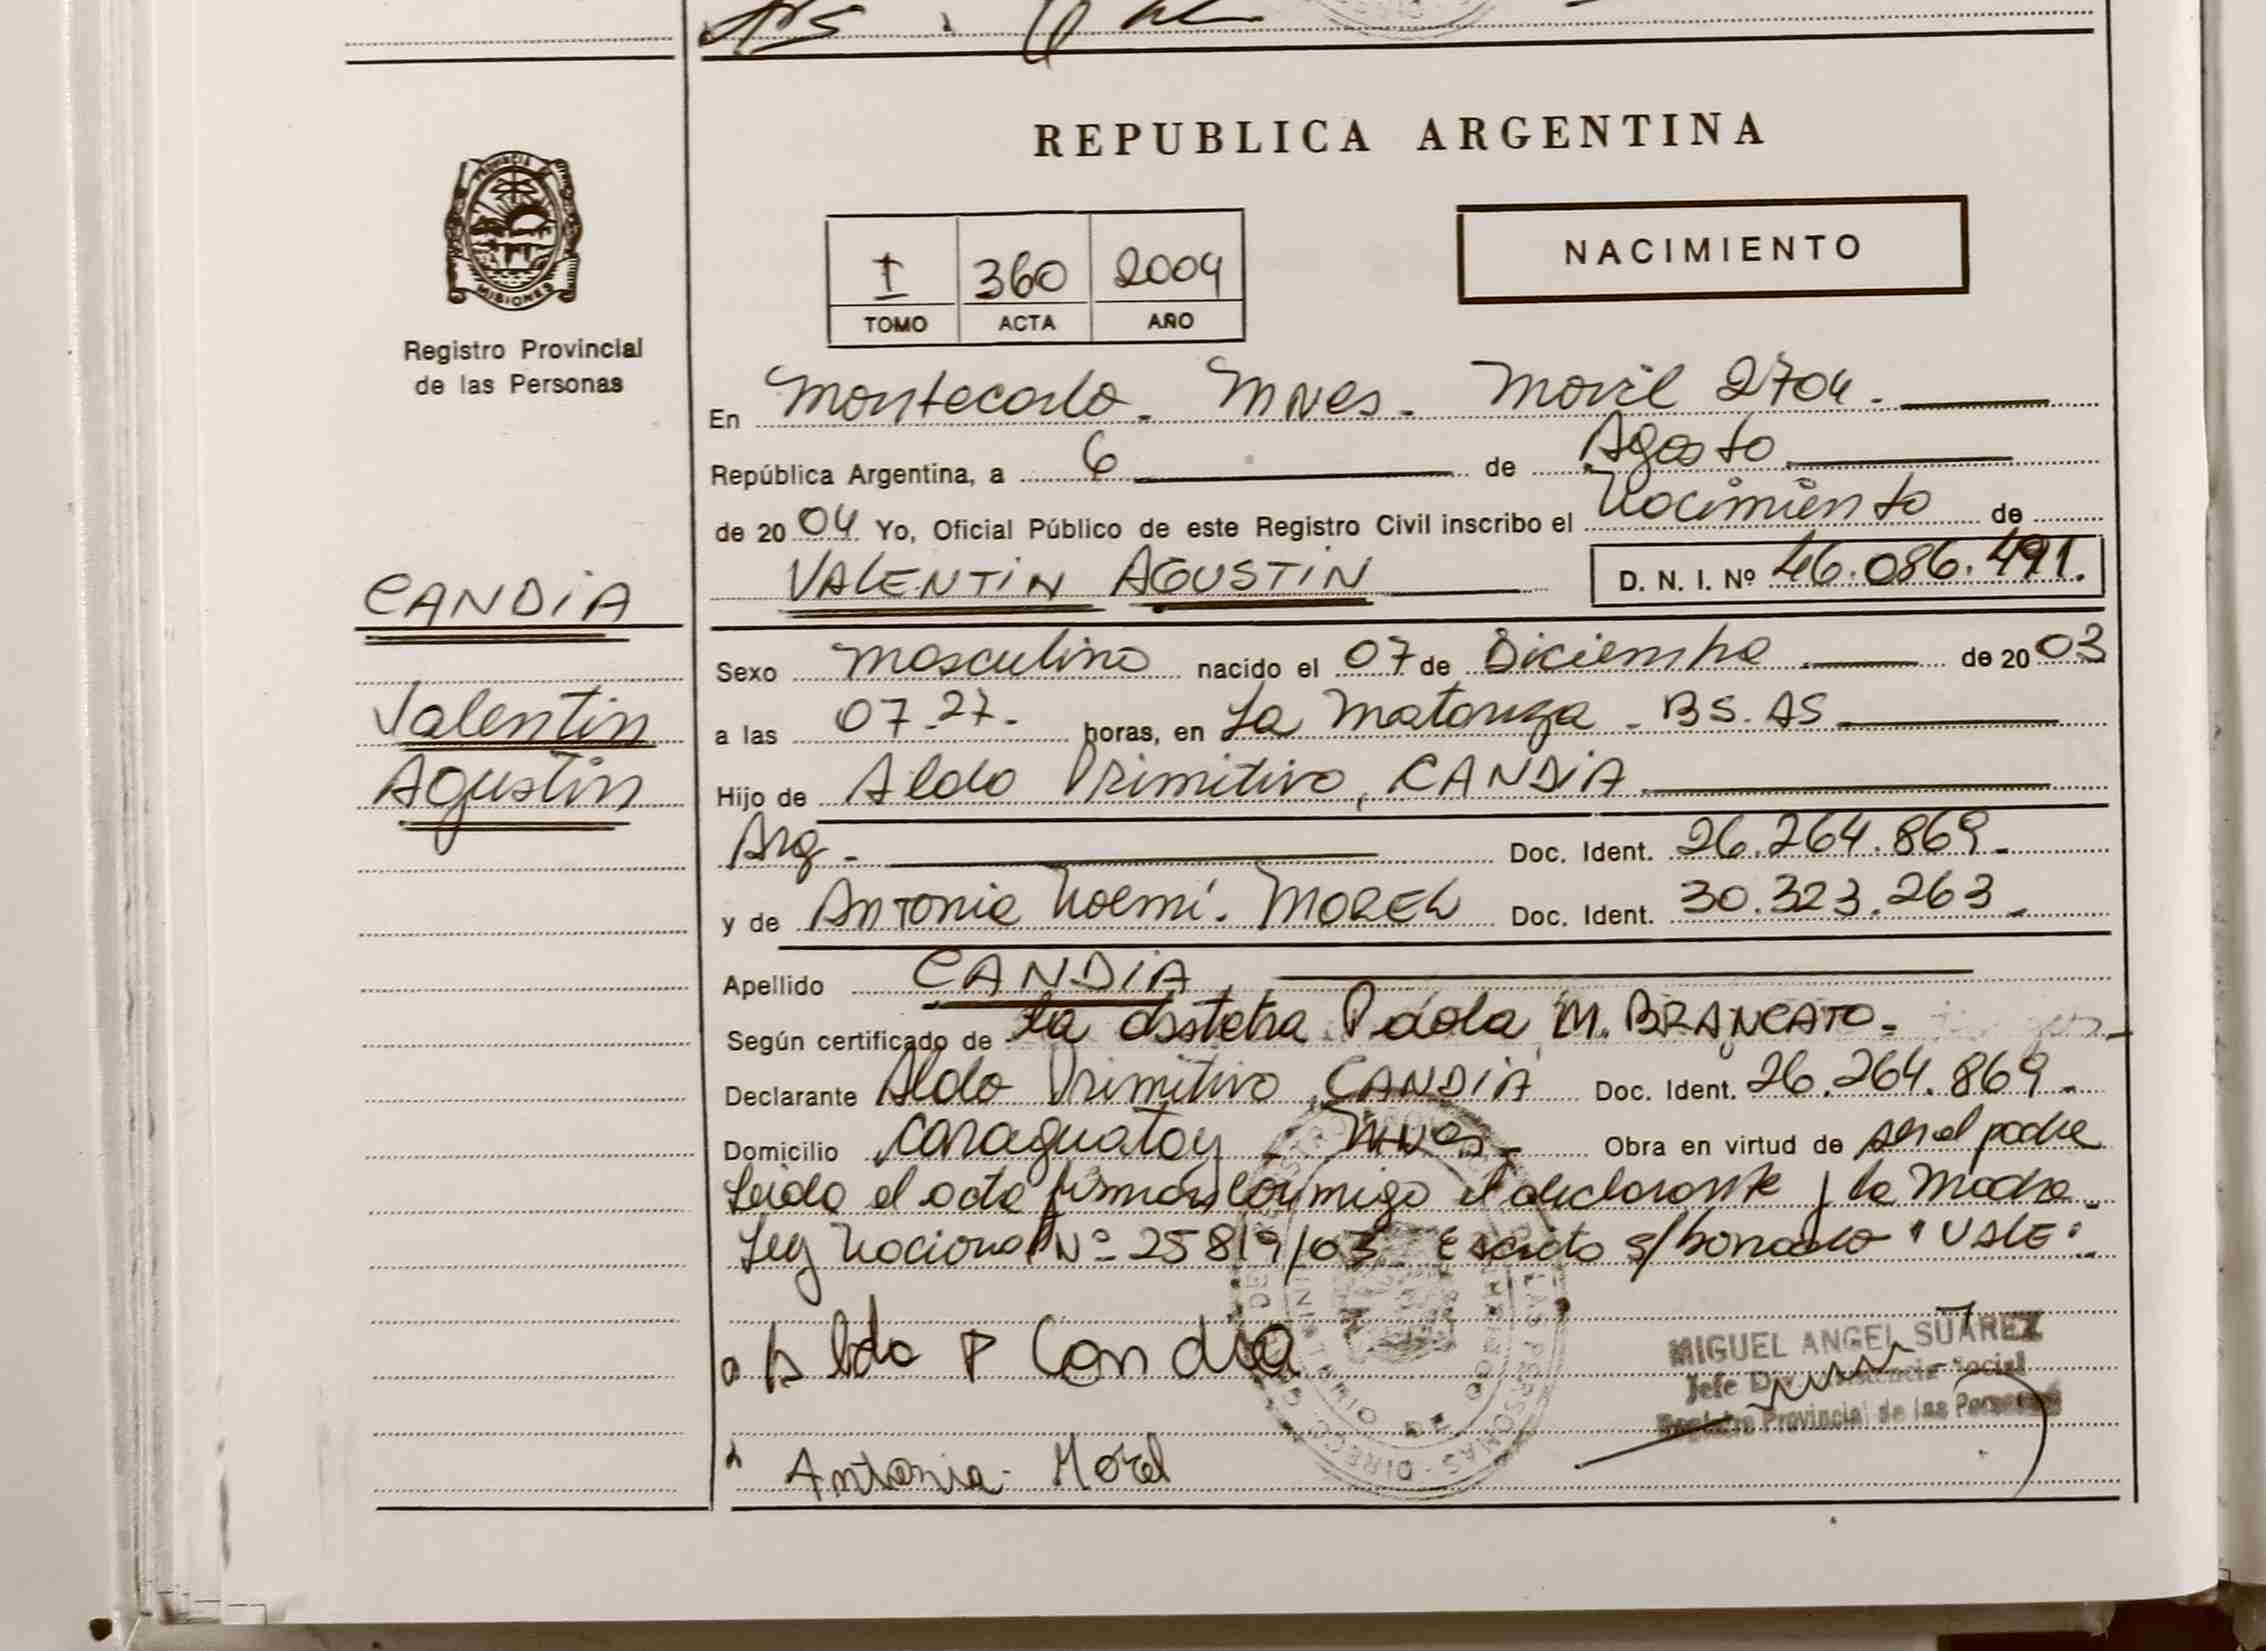 REPUBLICA ARGENTINA
PROVINCIA
MISIONES
Registro Provincial
de las Personas
NACIMIENTO
I 360 2004
TOMO ACTA AÑO
En Montecarlo - Mnes - Movil 2704.
República Argentina, a 6 de Agosto
de 2004 Yo, Oficial Público de este Registro Civil inscribo el Nacimiento de
VALENTIN AGUSTIN D. N. I. Nº 46.086.491.
CANDIA
Valentin
Agustin
Sexo Masculino nacido el 07 de Diciembre de 2003
a las 07.27. horas, en La Matanza - BS. AS
Hijo de Aldo Primitivo, CANDIA
Arg - Doc. Ident. 26.264.869 -
y de Antonia Noemí. MOREL Doc. Ident. 30.323.263 -
Apellido CANDIA
Según certificado de la obstetra Paola M. BRANCATO -
Declarante Aldo Primitivo, CANDIA Doc. Ident. 26.264.869 -
Domicilio Caraguatay - Mnes - Obra en virtud de ser el padre
Leida el acta firman conmigo el declarante y la Madre -
Ley Nacional Nº 25819/03 Escrito s/borrado "VALE"
Aldo P Candia
MIGUEL ANGEL SUAREZ
Jefe Social
Registro Provincial de las Personas
Antonia Morel